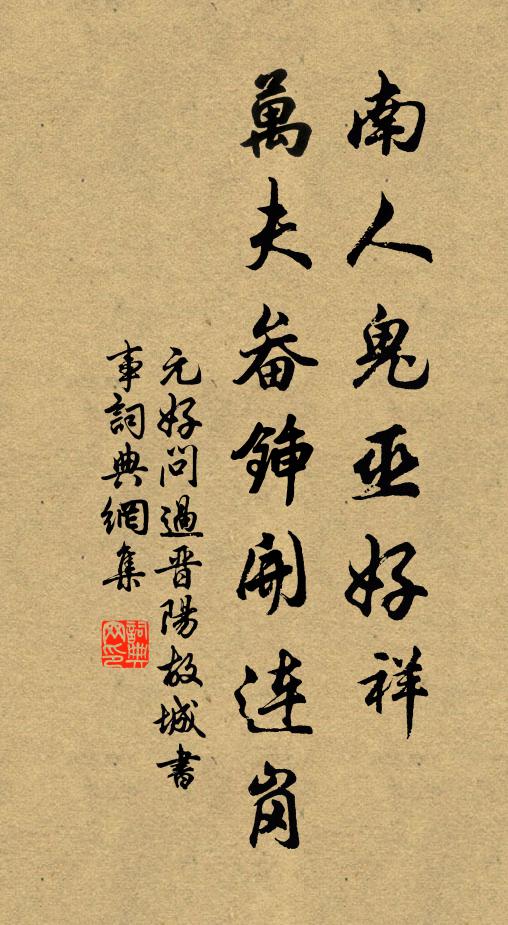 南人鬼巫好祥
萬夫畚鍤開連岗
元好問過晋陽故城書
事詞典網集
詞典网印